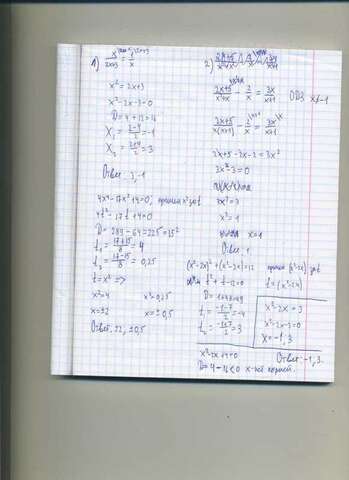 1) x/2x+3 = 1/x
x² = 2x+3
x²-2x-3=0
D=4+12=16
X₁ = 2-4/2 = -1
X₂ = 2+4/2 = 3
Ответ 3, -1
4x⁴-17x²+4=0, примем x² за t
4t²-17t+4=0
D=289-64=225=15²
t₁ = 17+15/8 = 4
t₂ = 17-15/8 = 0,25
t=x² =>
x²=4 x²=0,25
x=±2 x=±0,5
Ответ ±2, ±0,5
2)
2x+5/x²+x - 2/x = 3x/x+1 ОДЗ x≠-1
2x+5/x(x+1) - 2/x = 3x/x+1
2x+5-2x-2=3x²
3x²-3=0
3x²=3
x²=1
x=1
Ответ 1
(x²-2x)²+(x²-2x)=12 примем (x²-2x) за t
t²+t-12=0 t=(x²-2x)
D=1+48=49
t₁ = -1-7/2 = -4
t₂ = -1+7/2 = 3
x²-2x=3
x²-2x-3=0
x=-1, 3
x²-2x+4=0
D=4-16<0 x-нет корней.
Ответ -1, 3.